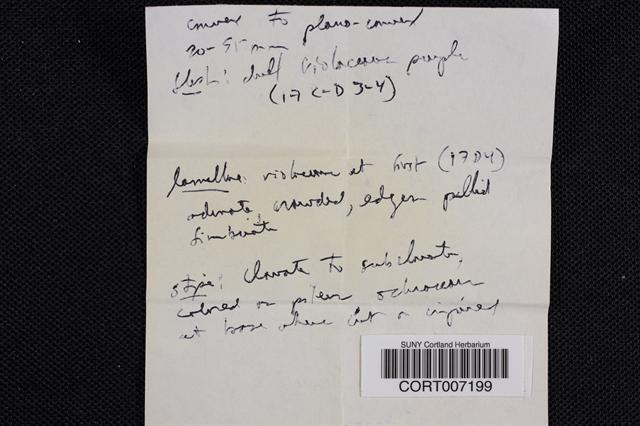 convex to plano-convex
30-55 mm
flesh: dull violaceous purple
(17 C-D 3-4)
lamellae: violaceous at first (17D4)
adnate, crowded, edges pallid
fimbriate
stipe: clavate to subclavate,
colored as pileus ochraceous
at base where cut or injured
SUNY Cortland Herbarium
CORT007199